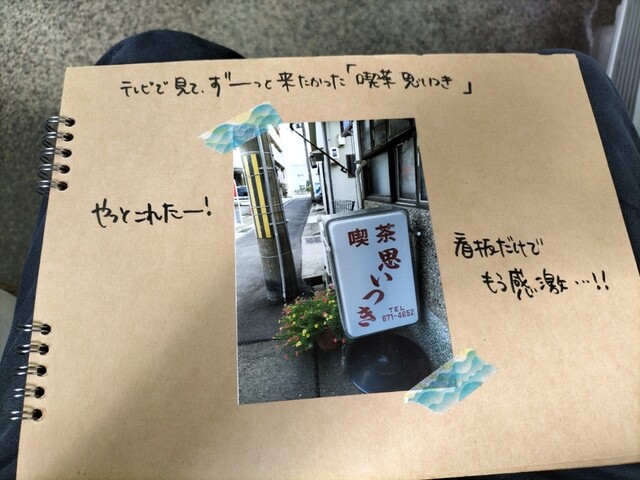 テレビで見て、ずーっと来たかった「喫茶 思いつき」
やっとこれたー!
喫茶
思いつき
TEL
671-4852
看板だけで
もう感激…!!